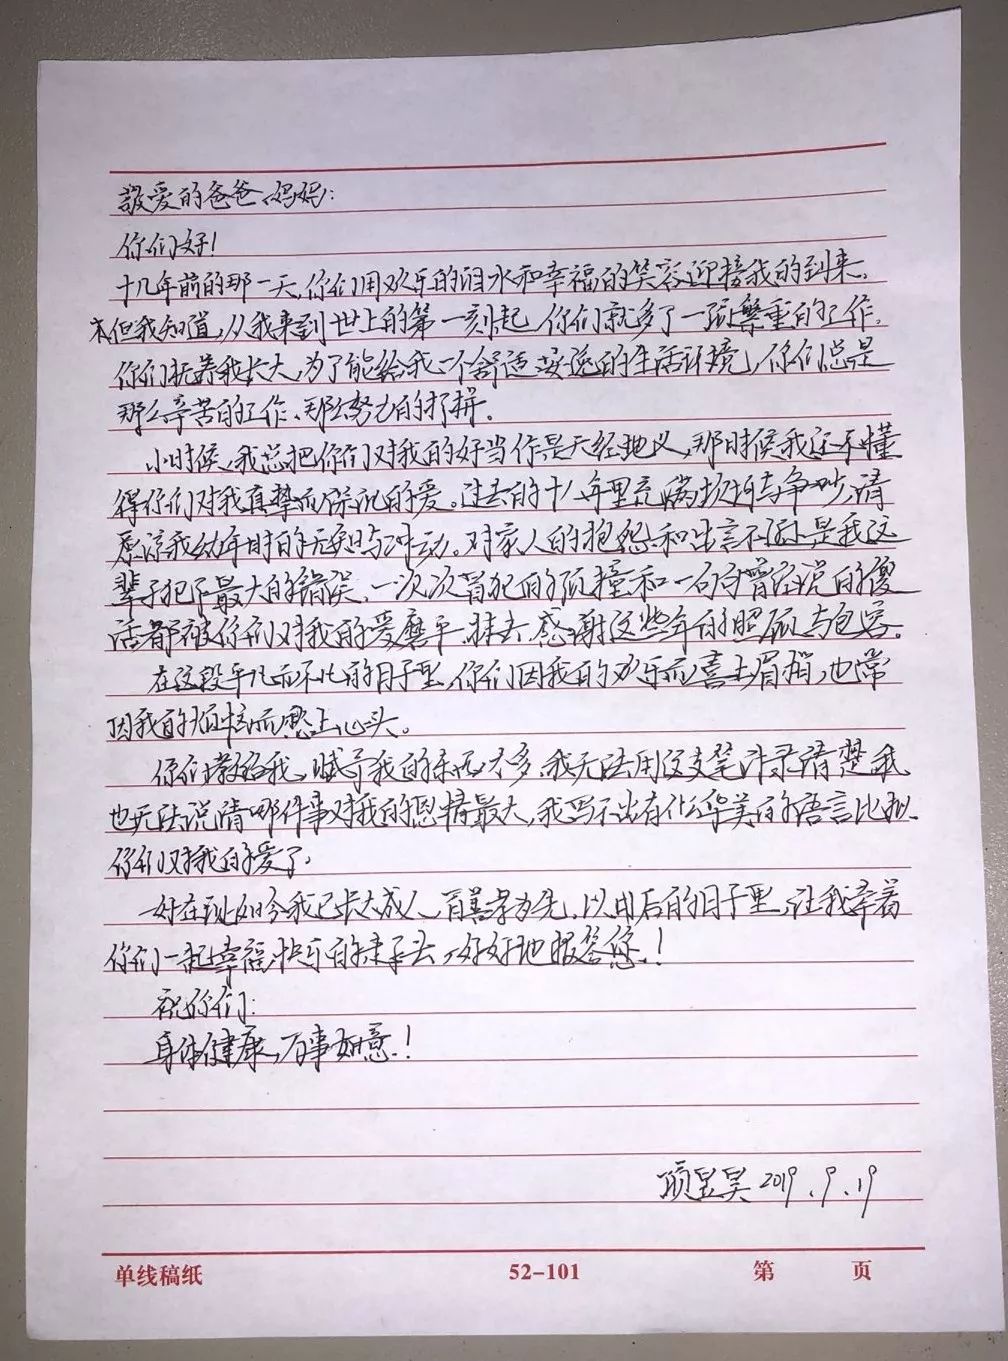 敬爱的爸爸、妈妈:
你们好!
十几年前的那一天,你们用欢乐的泪水和幸福的笑容迎接我的到来。
但我知道,从我来到世上的第一刻起,你们就多了一项繁重的工作。
你们抚养我长大,为了能给我一个舒适安逸的生活环境,你们总是
那么辛苦的工作、那么努力的打拼。
小时候,我总把你们对我的好当作是天经地义,那时候我还不懂
得你们对我真挚而深沉的爱。过去的十八年里充满坎坷与争吵,请
原谅我幼年时的无知与冲动。对家人的抱怨和出言不逊是我这
辈子犯下最大的错误,一次次冒犯的顶撞和一句句曾经说的傻
话都被你们对我的爱磨平、抹去,感谢这些年的照顾与包容。
在这段平凡而不凡的日子里,你们因我的欢乐而喜上眉梢,也常
因我的烦恼而愁上心头。
你们教给我、赋予我的东西太多,我无法用这支笔记录清楚,我
也无法说清哪件事对我的恩情最大,我写不出有什么华美的语言比拟
你们对我的爱了。
好在到如今我已长大成人,百善孝为先,以后的日子里,让我牵着
你们一起幸福快乐的走下去,好好地报答您!
祝你们:
身体健康,万事如意!
项昱昊 2019.9.19
单线稿纸 52-101 第 页